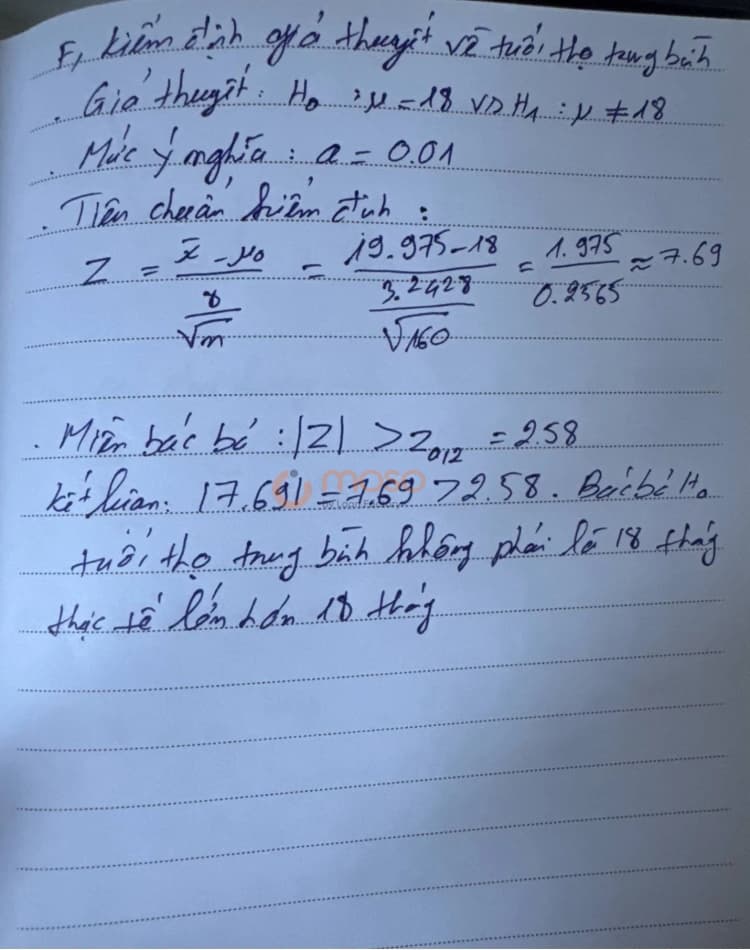 F, kiểm định giả thuyết về tuổi thọ trung bình
. Giả thuyết : H₀ : μ = 18 vs H₁ : μ ≠ 18
. Mức ý nghĩa : a = 0.01
. Tiêu chuẩn kiểm định :
Z = (x̄ - μ₀) / (s/√n) = (19.975-18) / (3.2428/√160) = 1.975/0.2565 ≈ 7.69
. Miền bác bỏ : |Z| > Z₀,₂ = 2.58
moso
kết luận: |7.69| = 7.69 > 2.58. Bác bỏ H₀
tuổi thọ trung bình không phải là 18 tháng
thực tế lớn hơn 18 tháng